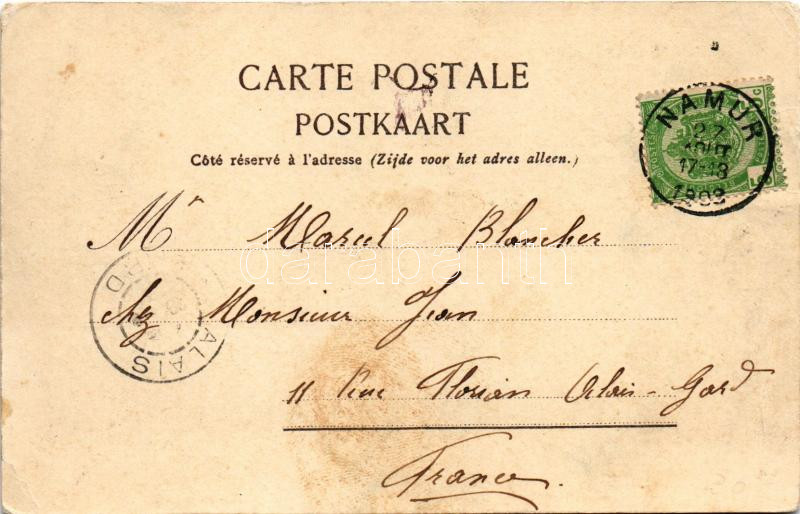 CARTE POSTALE
POSTKAART
Côté réservé à l'adresse (Zijde voor het adres alleen.)
NAMUR
27
AOUT
17-18
Mr Marcel Blancher
chez Monsieur Jean
11 Rue Florian Alais-Gard
France.
ALAIS
darabanth